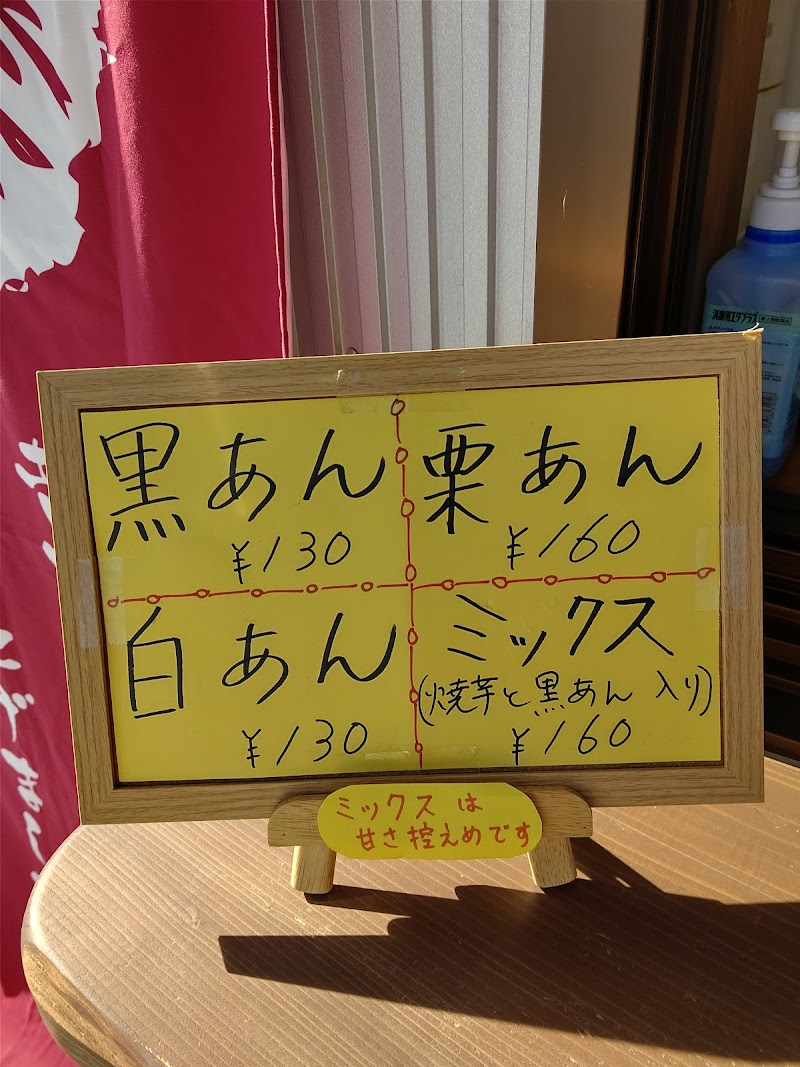 黒あん
¥130
栗あん
¥160
白あん
¥130
ミックス
(焼芋と黒あん 入り)
¥160
ミックスは
甘さ控えめです